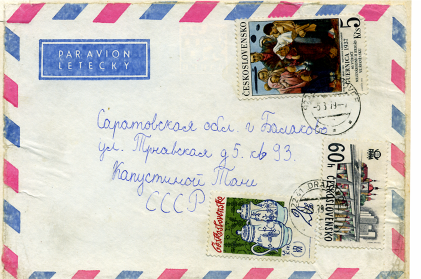 PAR AVION
LETECKY
ČESKOSLOVENSKO
5 Kčs
GUERNICA 1937
Саратовская обл. г. Балаково
ул. Трнавская д 5. кв 93.
Капустиной Тане
СССР
60 h
ČESKOSLOVENSKO
Československo